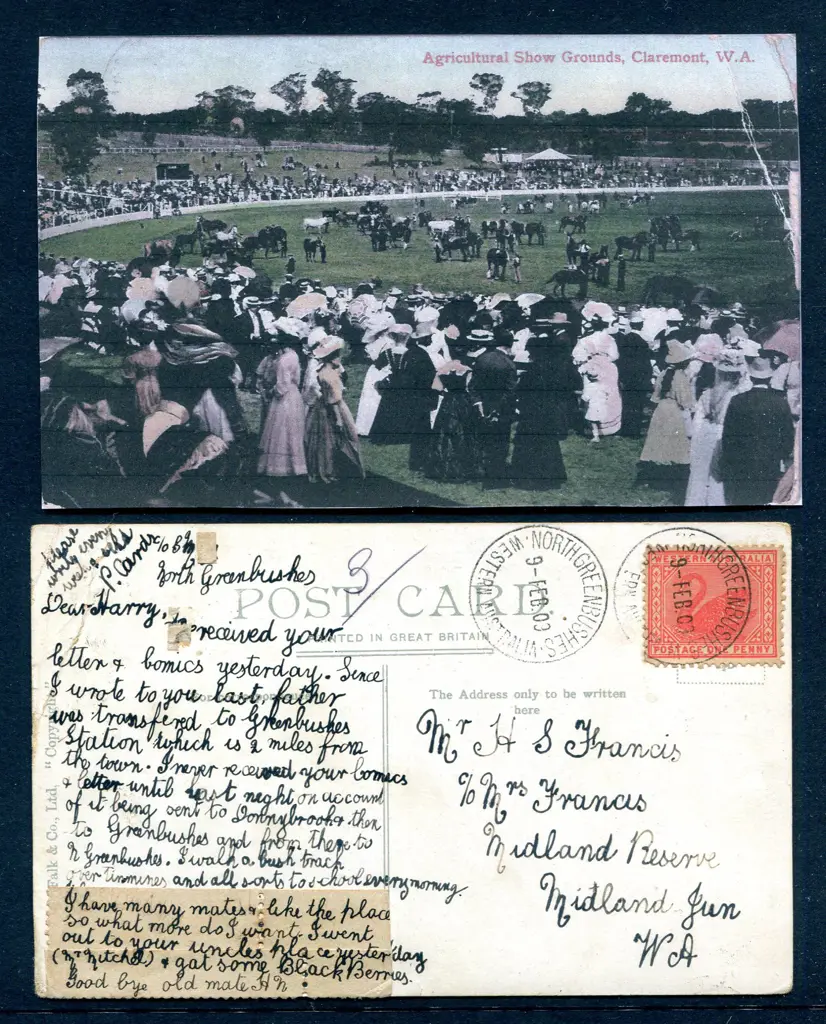 Agricultural Show Grounds, Claremont, W.A.
please
write every
week & ask
P. Cards
North Greenbushes
POST CARD.
PRINTED IN GREAT BRITAIN
3
NORTHGREENBUSHES
9-FEB 09
WESTERN AUSTRALIA
NORTHGREENBUSHES
9-FEB 09
WESTERN AUSTRALIA
POSTAGE ONE PENNY
Dear Harry,
I received your
letter & comics yesterday. Since
I wrote to you last, father
was transfered to Greenbushes
Station which is 2 miles from
the town. I never received your comics
& letter until last neght on account
of it being sent to Donnybrook & then
to Greenbushes and from there to
N Greenbushes. I walk a bush track
over tinmines and all sorts to school every morning.
I have many mates & like the place
so what more do I want. I went
out to your uncles place yesterday
(Mr Mitchel) & got some BlackBerries.
Good bye old mate
Falk & Co., Ltd. "Copyright"
The Address only to be written
here
Mr H S Francis
c/o Mrs Francis
Midland Reserve
Midland Jun
W A